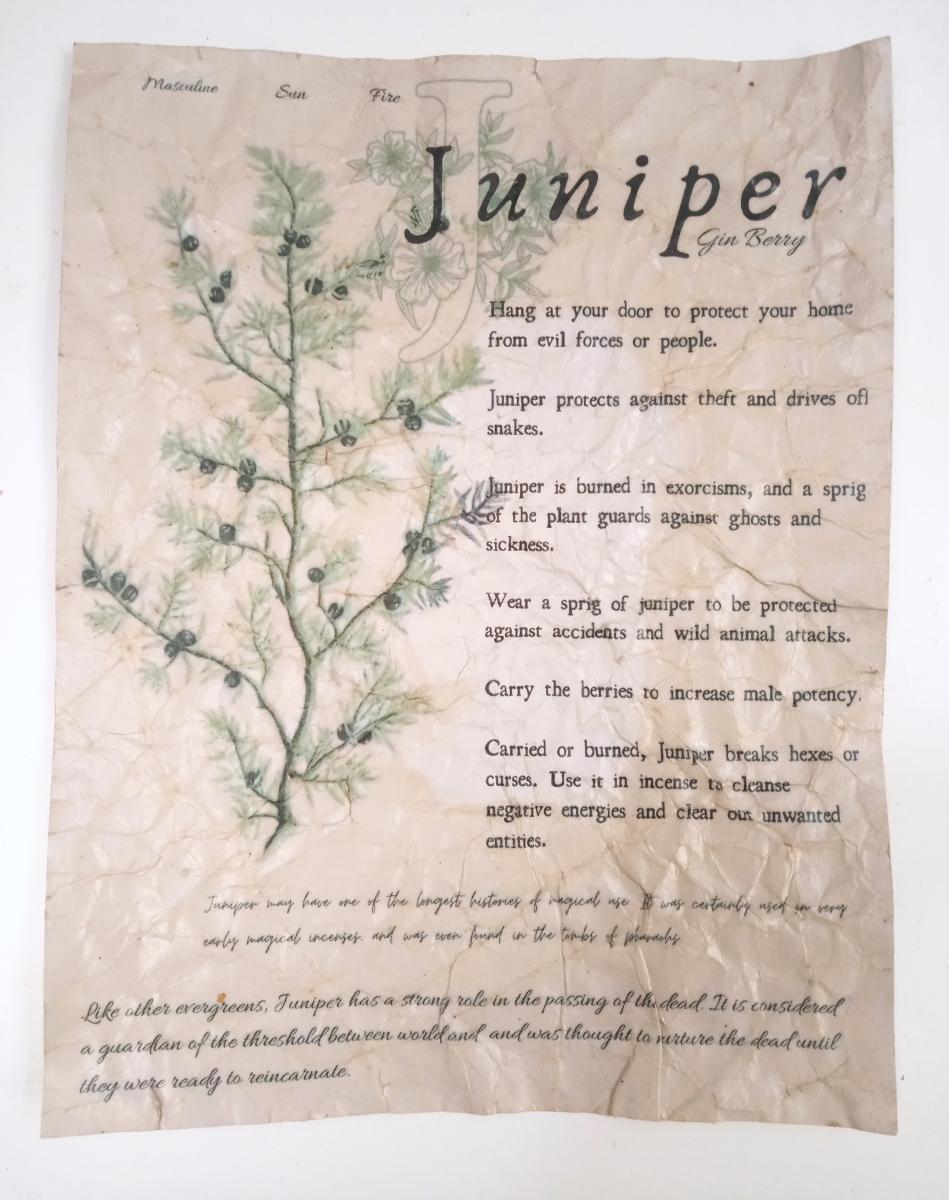 Masculine Sun Fire
J
Juniper
Gin Berry
Hang at your door to protect your home
from evil forces or people.
Juniper protects against theft and drives off
snakes.
Juniper is burned in exorcisms, and a sprig
of the plant guards against ghosts and
sickness.
Wear a sprig of juniper to be protected
against accidents and wild animal attacks.
Carry the berries to increase male potency.
Carried or burned, Juniper breaks hexes or
curses. Use it in incense to cleanse
negative energies and clear out unwanted
entities.
Juniper may have one of the longest histories of magical use. It was certainly used in very
early magical incenses, and was even found in the tombs of pharaohs
Like other evergreens, Juniper has a strong role in the passing of the dead. It is considered
a guardian of the threshold between world and and was thought to nurture the dead until
they were ready to reincarnate.